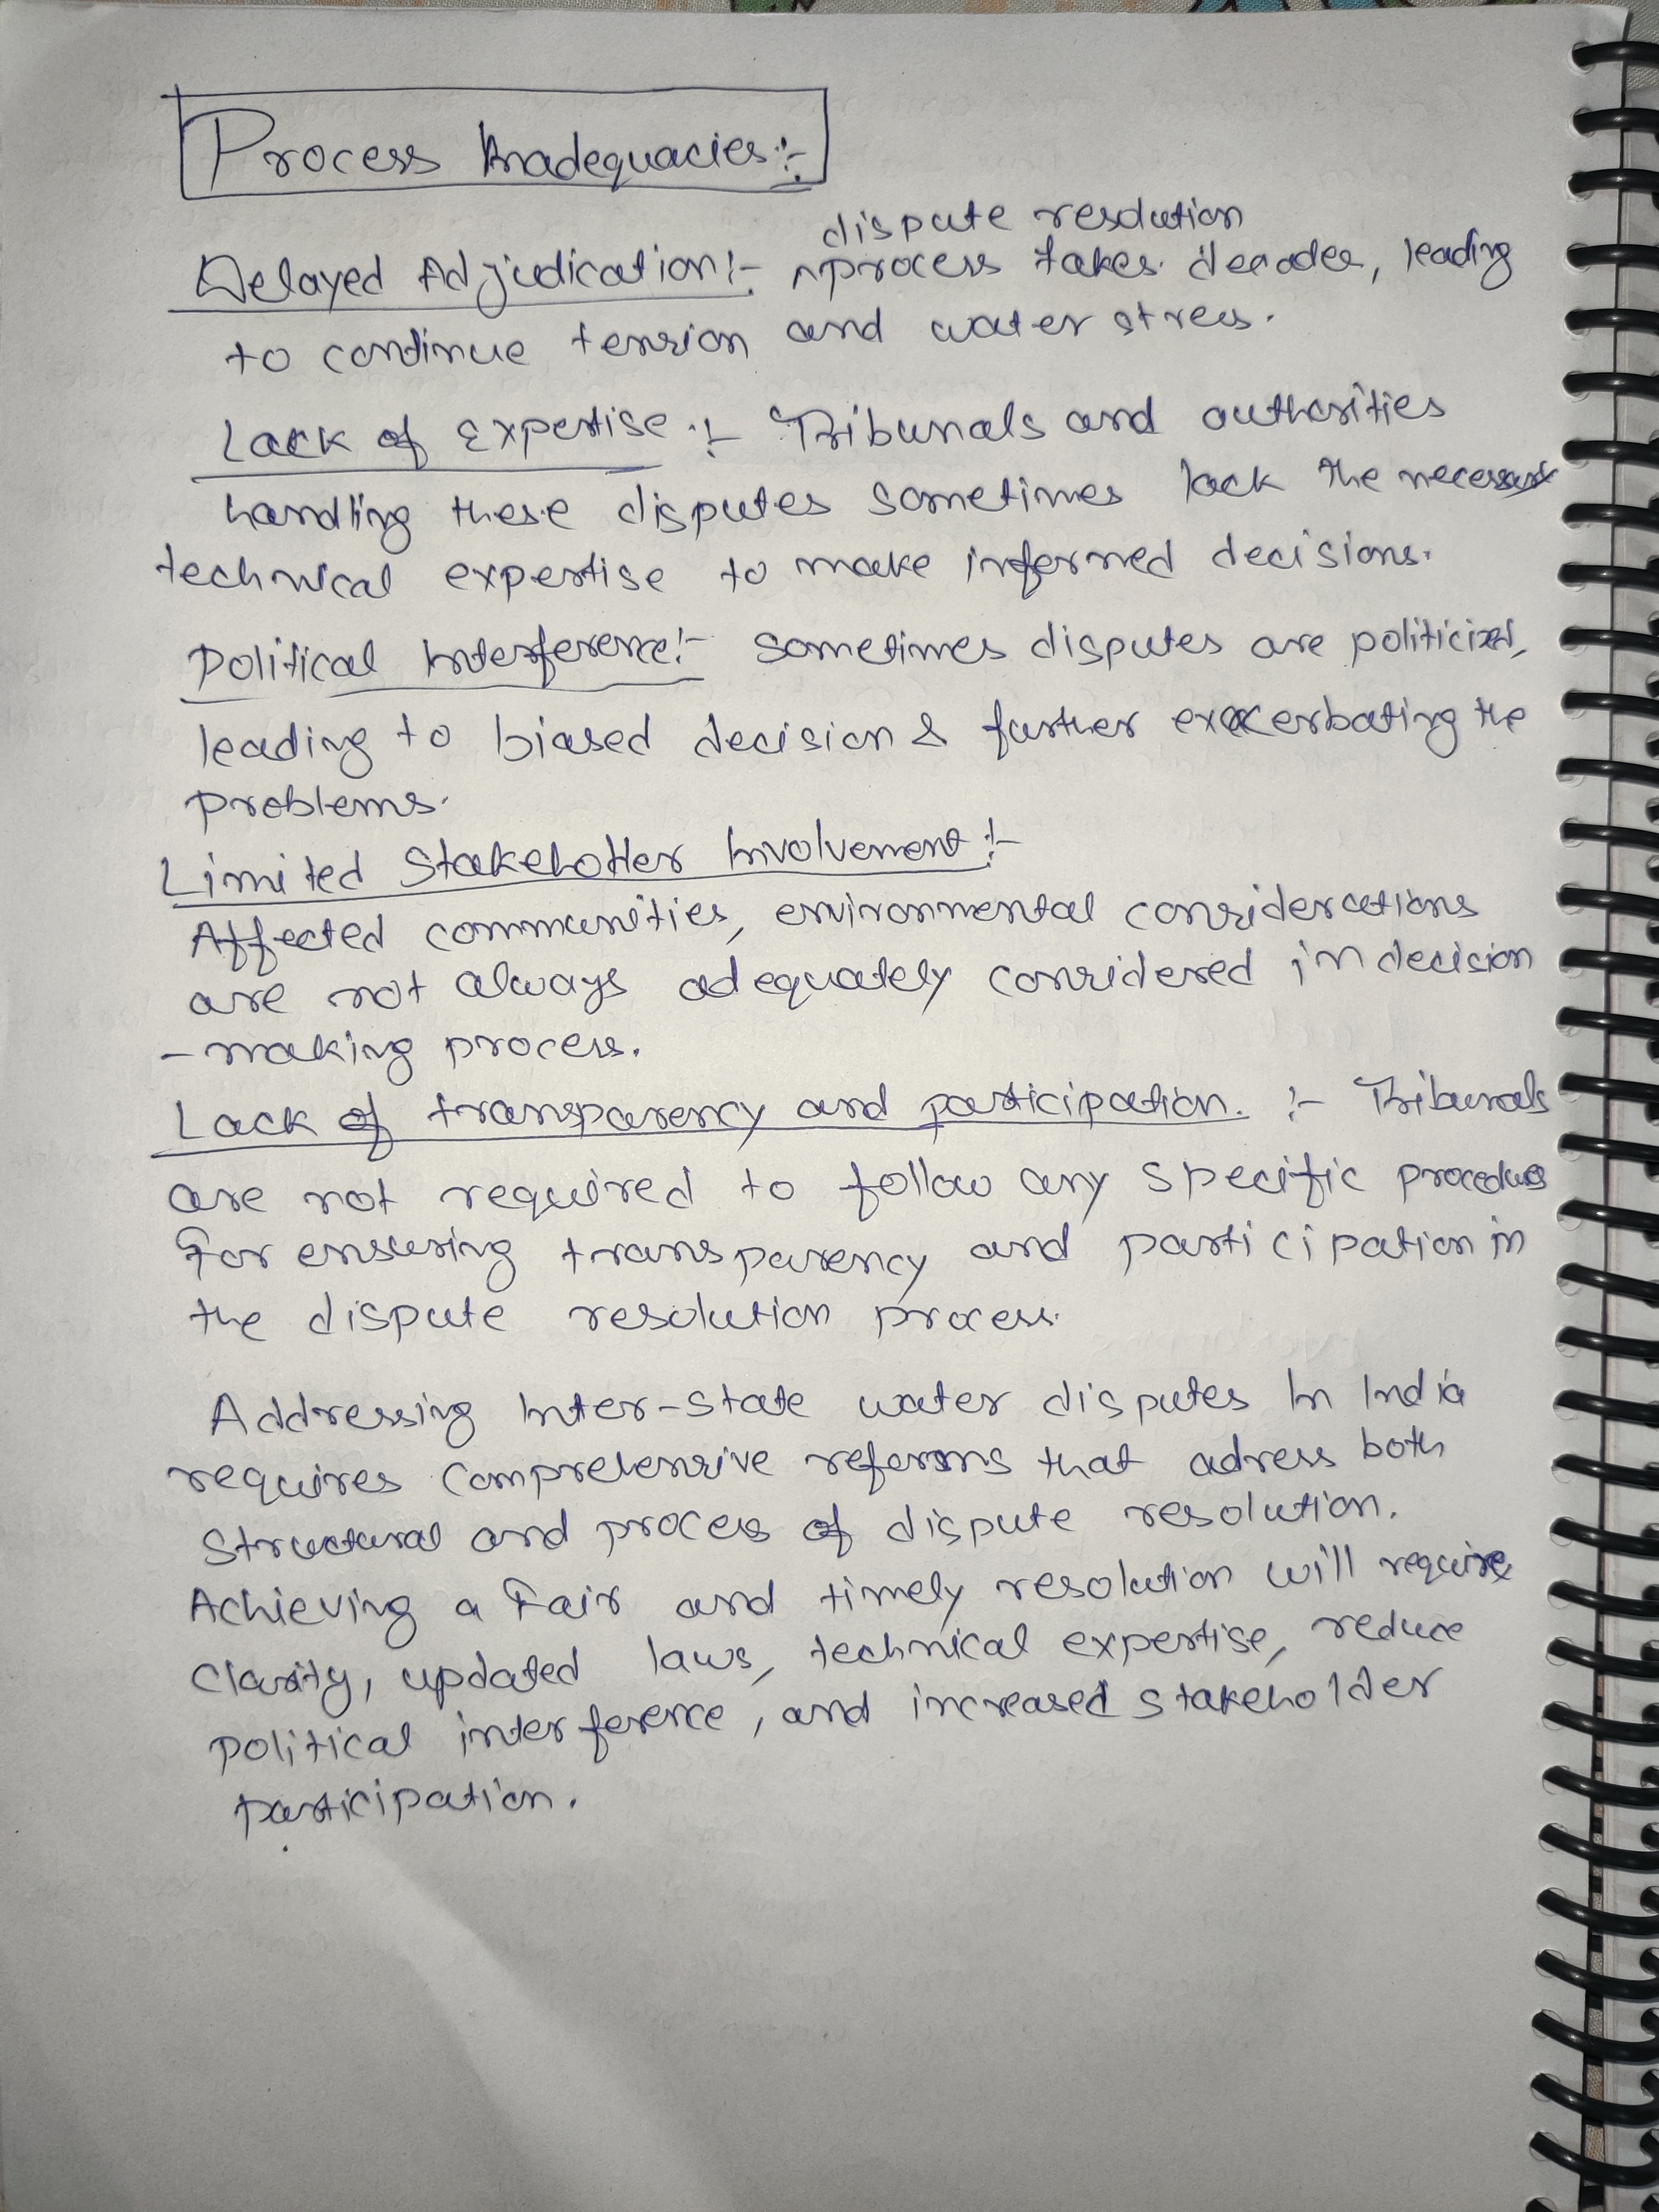 Process Inadequacies :-
dispute resolution
Delayed Adjudication :- ^process takes decades, leading
to continue tension and water stress.
Lack of Expertise :- Tribunals and authorities
handling these disputes sometimes lack the necessary
technical expertise to make informed decisions.
Political Interference :- sometimes disputes are politicized,
leading to biased decision & further exacerbating the
problems.
Limited Stakeholder Involvement :-
Affected communities, environmental considerations
are not always adequately considered in decision
- making process.
Lack of transparency and participation. :- Tribunals
are not required to follow any specific procedures
for ensuring transparency and participation in
the dispute resolution process.
Addressing Inter-state water disputes In India
requires comprehensive reforms that adress both
structural and process of dispute resolution.
Achieving a fair and timely resolution will require
clarity, updated laws, technical expertise, reduce
political interference, and increased stakeholder
participation.